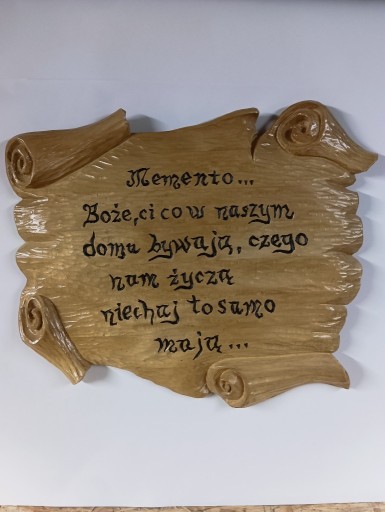 Memento...
Boże, ci co w naszym
domu bywają, czego
nam życzą
niechaj to samo
mają...